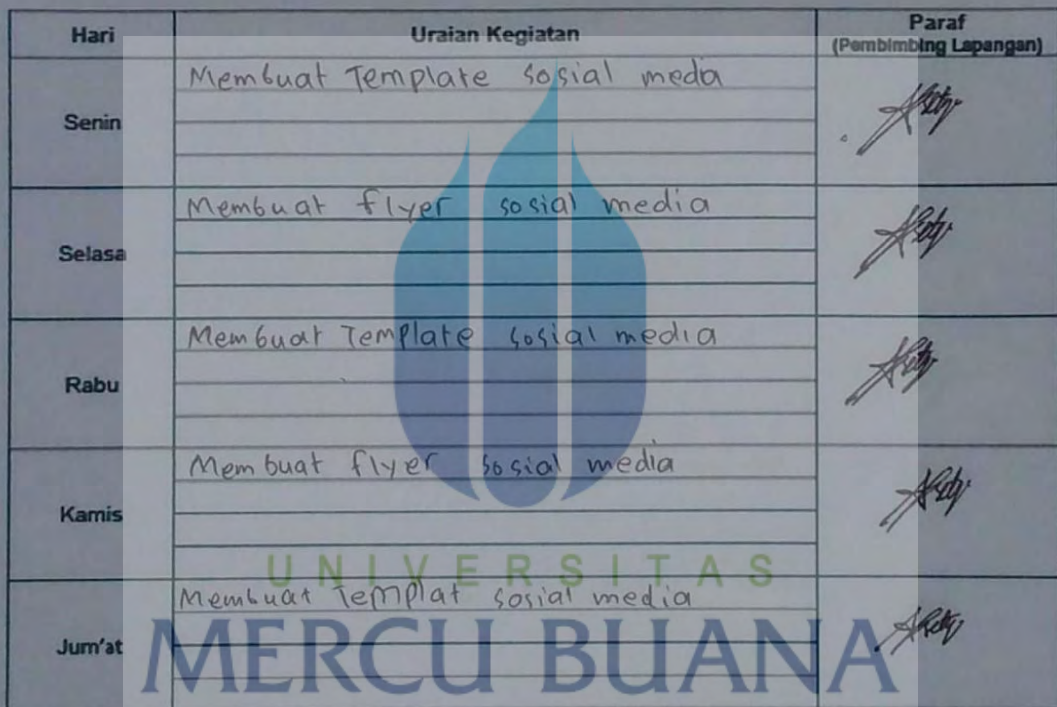 Hari Uraian Kegiatan Paraf
(Pembimbing Lapangan)
Senin Membuat Template sosial meda
Selasa Membuat flyer sosial media
Rabu Membuat Template sosial media
Kamis Membuat flyer sosial media
Jum'at Membuat Templat sosial media
UNIVERSITAS
MERCU BUANA